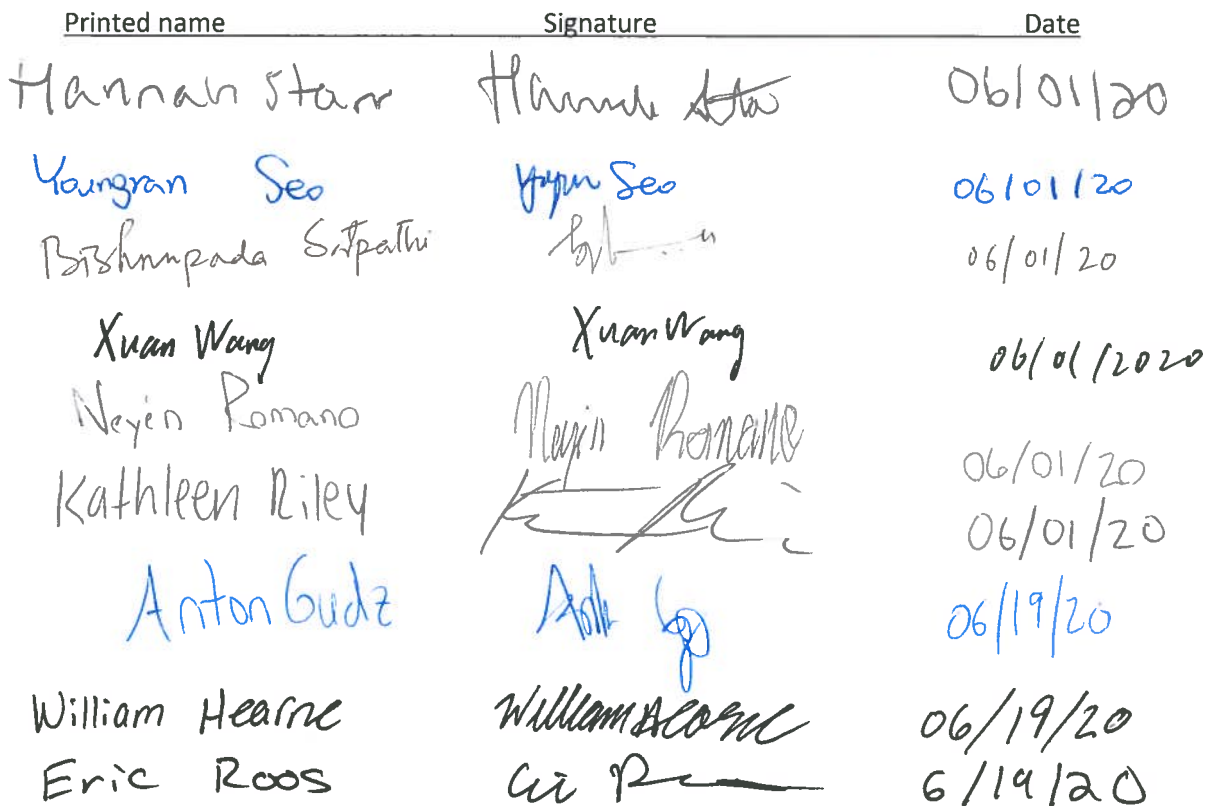 Printed name Signature Date
Hannah Starr Hannah Sta 06/01/20
Youngran Seo Seo 06/01/20
Bishnupada Satpathi 06/01/20
Xuan Wang Xuan Wang 06/01/2020
Neyén Romano Neyén Romano 06/01/20
Kathleen Riley 06/01/20
Anton Gudz 06/19/20
William Hearne William Hearne 06/19/20
Eric Roos 6/19/20